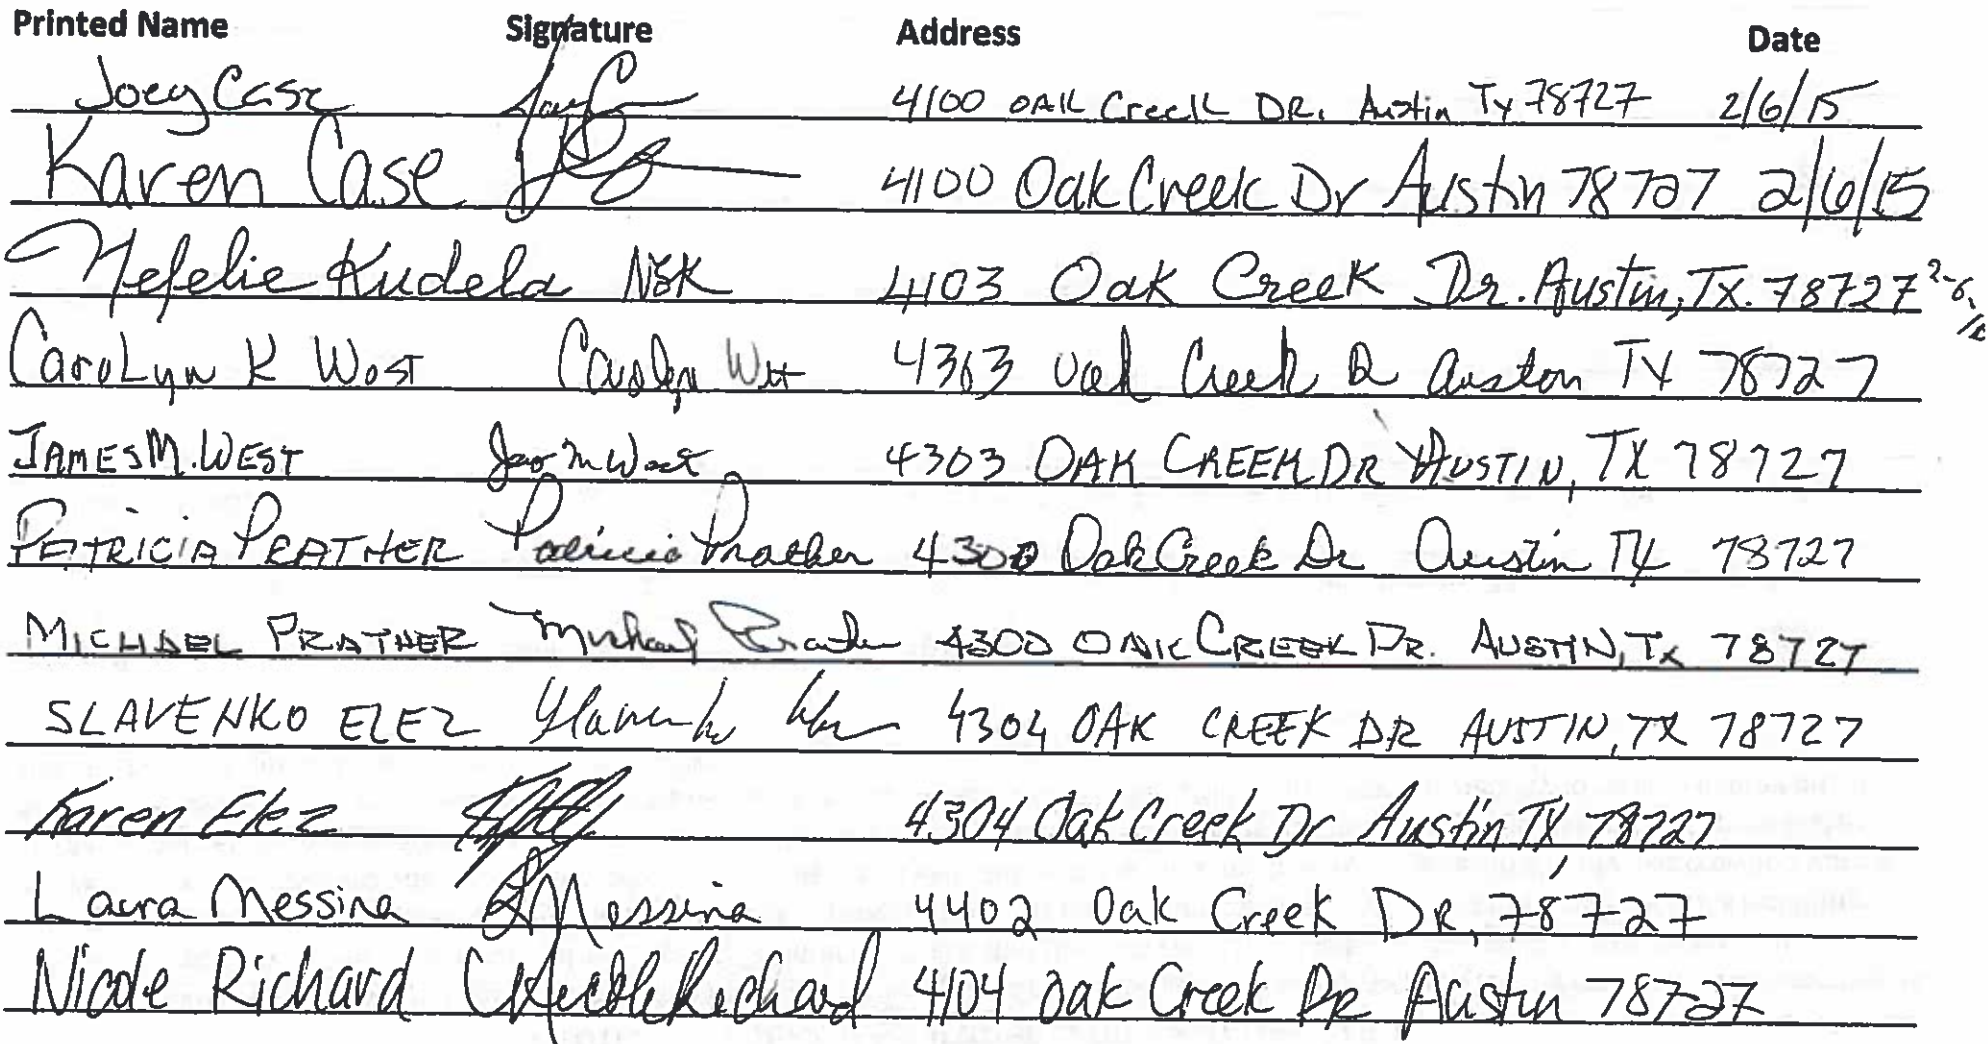 Printed Name Signature Address Date
Joey Case 4100 OAK Creek DR. Austin Tx 78727 2/6/15
Karen Case 4100 Oak Creek Dr Austin 78727 2/6/15
Nefelie Kudela NSK 4103 Oak Creek Dr. Austin, TX. 78727
CaroLyn K West Carolyn West 4303 Oak Creek Dr Austin TX 78727
JAMES M. WEST James M West 4303 OAK CREEK DR AUSTIN, TX 78727
PATRICIA PRATHER Patricia Prather 4300 Oak Creek Dr Austin TX 78727
MICHAEL PRATHER Michael Prather 4300 OAK CREEK DR. AUSTIN, TX 78727
SLAVENKO ELEZ 4304 OAK CREEK DR AUSTIN, TX 78727
Karen Elez 4304 Oak Creek Dr Austin TX 78727
Laura Messina LMessina 4402 Oak Creek DR, 78727
Nicole Richard Nicole Richard 4104 Oak Creek DR Austin 78727